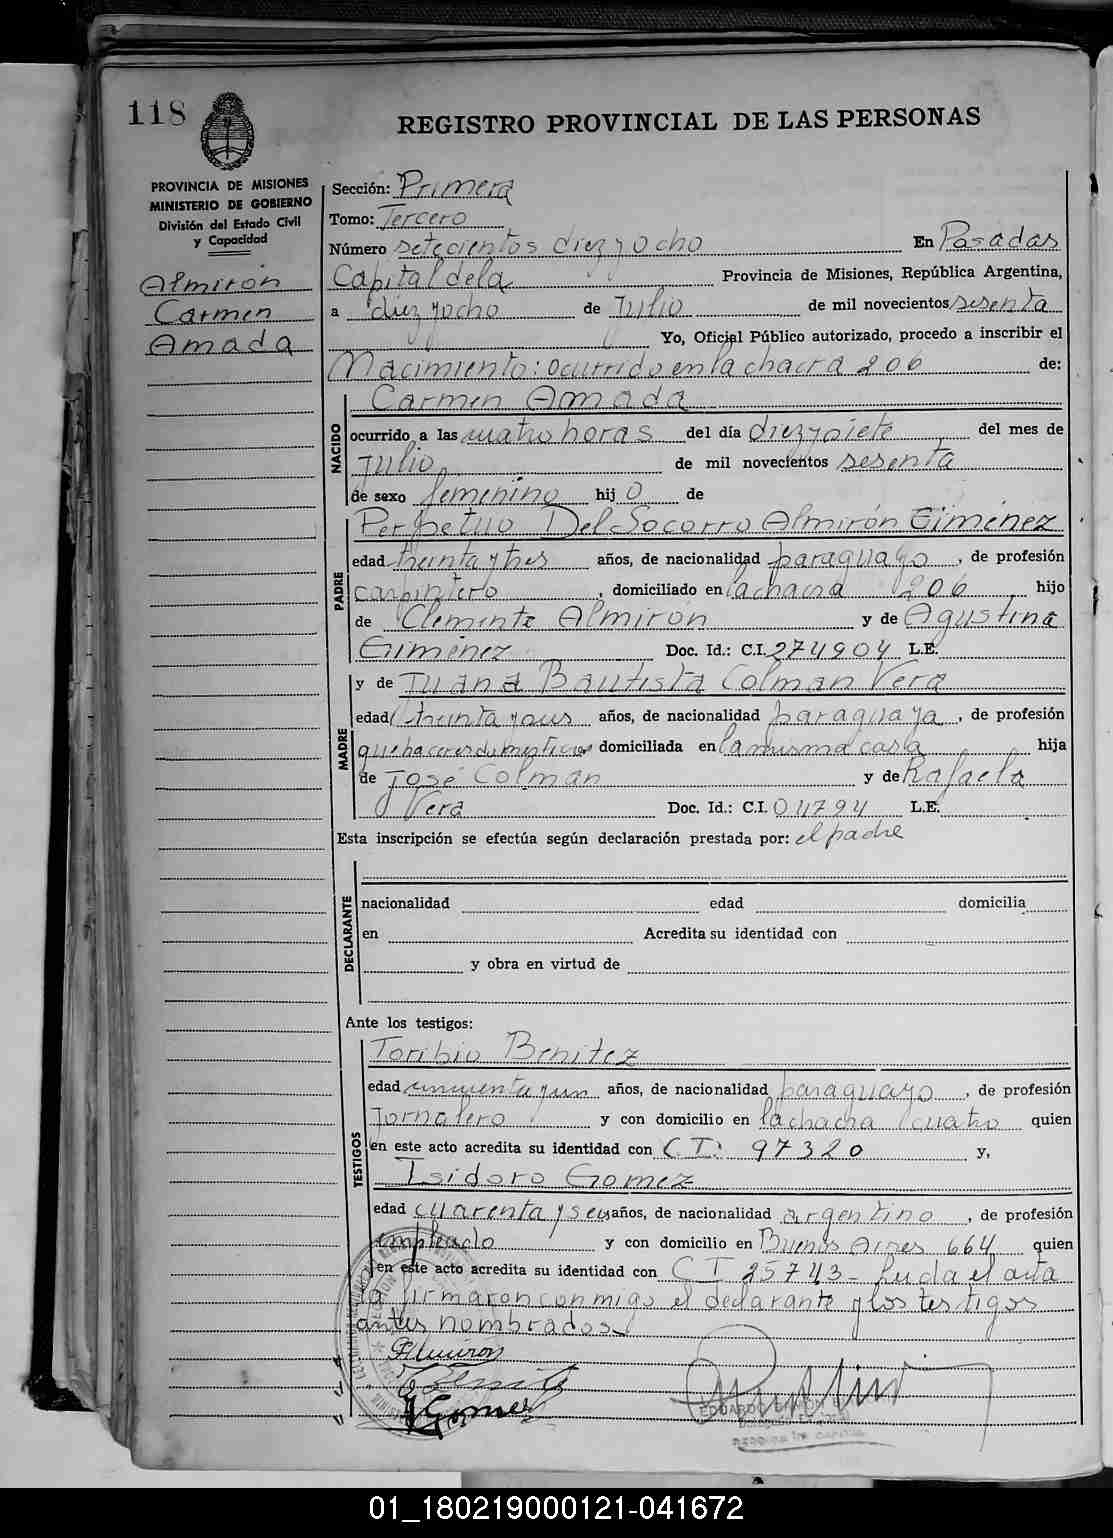 118
REGISTRO PROVINCIAL DE LAS PERSONAS
PROVINCIA DE MISIONES
MINISTERIO DE GOBIERNO
División del Estado Civil
y Capacidad
Almirón
Carmen
Amada
Sección: Primera
Tomo: Tercero
Número setecientos diez y ocho En Posadas
Capital de la Provincia de Misiones, República Argentina,
a diez y ocho de Julio de mil novecientos sesenta
Yo, Oficial Público autorizado, procedo a inscribir el
Nacimiento: ocurrido en la chacra 206 de:
NACIDO
Carmen Amada
ocurrido a las cuatro horas del día diez y siete del mes de
Julio de mil novecientos sesenta
de sexo femenino hij o de
PADRE
Perpetuo Del Socorro Almirón Giménez
edad treinta y tres años, de nacionalidad paraguayo, de profesión
carpintero, domiciliado en la chacra 206 hijo
de Clemente Almirón y de Agustina
Giménez Doc. Id.: C.I. 274904 L.E.
MADRE
y de Juana Bautista Colman Vera
edad treinta y dos años, de nacionalidad paraguaya, de profesión
quehaceres domésticos domiciliada en la misma casa hija
de José Colman y de Rafaela
Vera Doc. Id.: C.I. 04794 L.E.
Esta inscripción se efectúa según declaración prestada por: el padre
DECLARANTE
nacionalidad edad domicilia
en Acredita su identidad con
y obra en virtud de
Ante los testigos:
TESTIGOS
Toribio Benitez
edad cincuenta y un años, de nacionalidad paraguayo, de profesión
Jornalero y con domicilio en la chacra cuatro quien
en este acto acredita su identidad con C.I: 97320 y,
Isidoro Gomez
edad cuarenta y seis años, de nacionalidad argentino, de profesión
empleado y con domicilio en Buenos Aires 664 quien
en este acto acredita su identidad con C I 25743- Leida el acta
la firmaron conmigo el declarante y los testigos
antes nombrados
PAlmirón
TBenitez
IGomez
EDUARDO
01_180219000121-041672